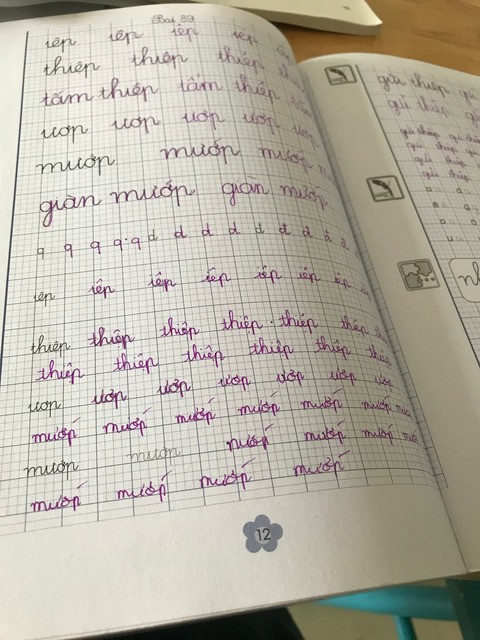 Bài 89
iêp iêp iêp iêp
thiêp thiêp thiêp
tấm thiếp tấm thiếp
ươp ươp ươp ươp ươp
mướp mướp mướp
giàn mướp giàn mướp
q q q q q d d d d d d
iêp iêp iêp iếp iêp iêp iêp
thiêp thiêp thiếp thiếp thiếp thiếp
thiếp thiếp thiếp thiếp thiếp thiếp
ươp ươp ươp ươp ươp ươp ươp
mướp mướp mướp mướp mướp mướp
mướp mướp mướp mướp mướp
mướp mướp mướp mướp
12
gửi thiếp
gửi thiếp
gửi thiếp
gửi thiếp
gửi thiếp
gửi thiếp